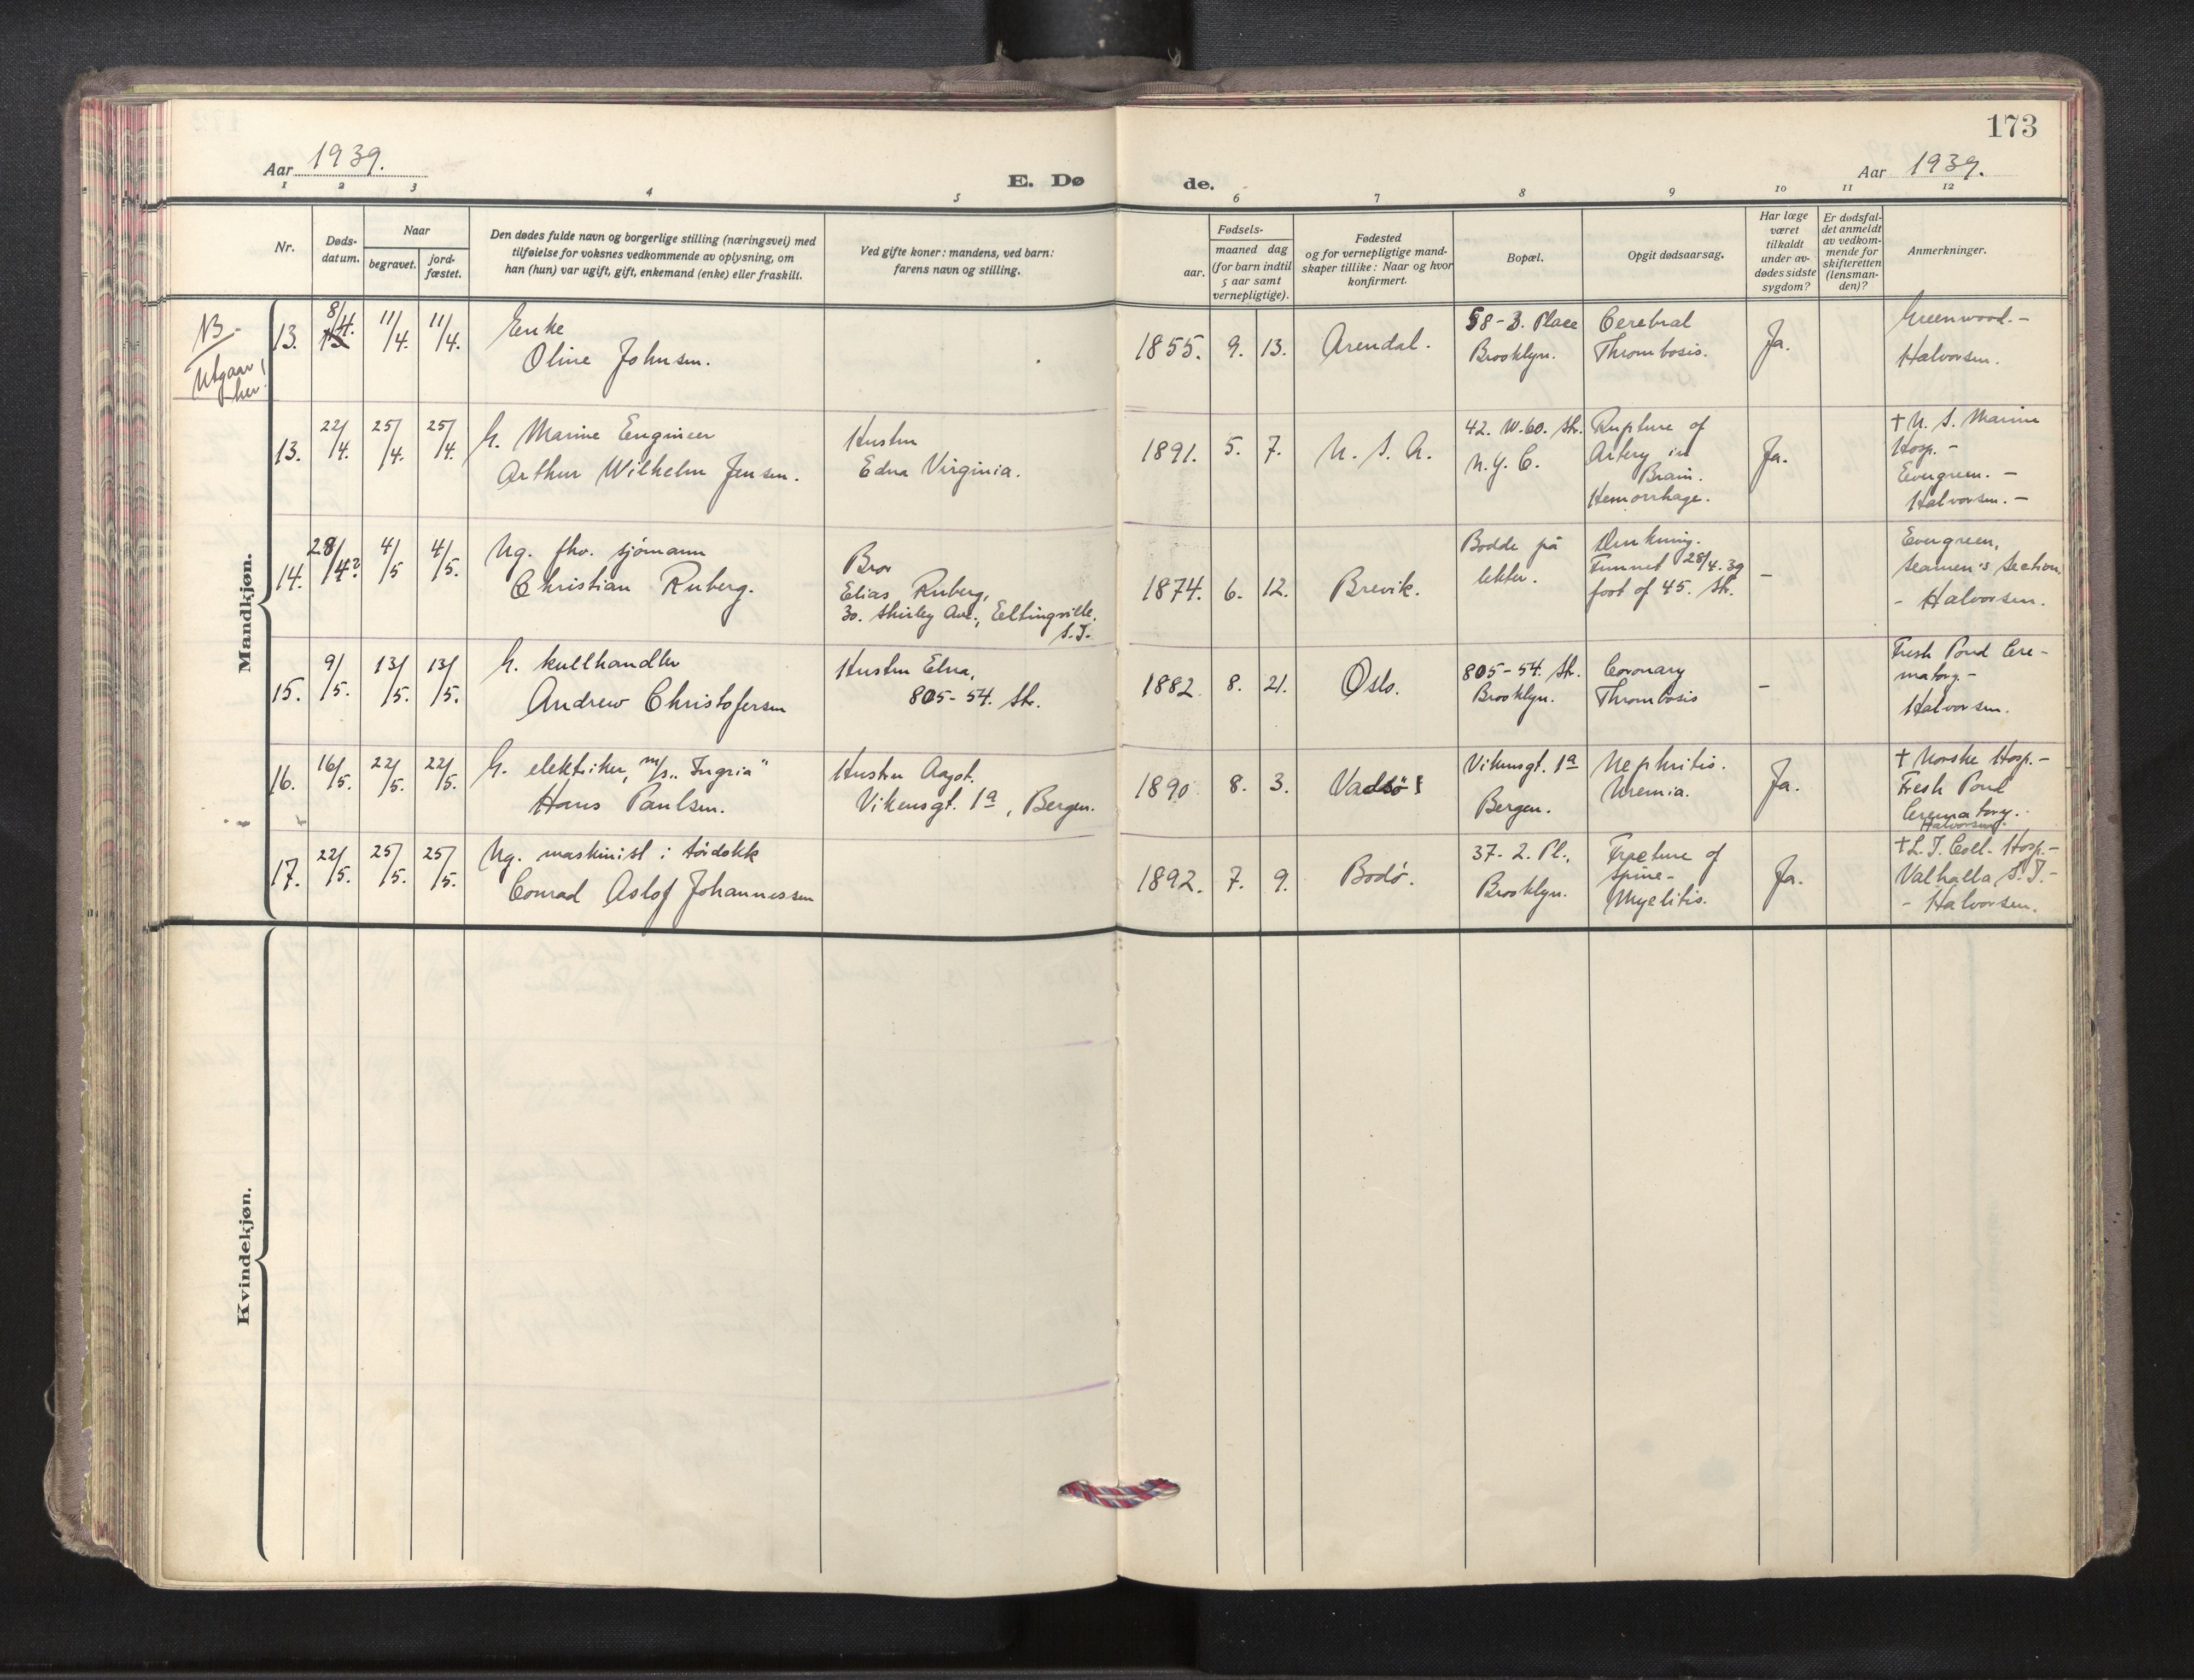 173
Aar 1939.
E. Dø
de.
Aar 1939.
1 2 3 4 5 6 7 8 9 10 11 12
Nr.
Døds-
datum.
Naar
begravet.
jord-
fæstet.
Den dødes fulde navn og borgerlige stilling (næringsvei) med
tilføielse for voksnes vedkommende av oplysning, om
han (hun) var ugift, gift, enkemand (enke) eller fraskilt.
Ved gifte koner: mandens, ved barn:
farens navn og stilling.
Fødsels-
aar.
maaned dag
(for barn indtil
5 aar samt
vernepligtige).
Fødested
og for vernepligtige mand-
skaper tillike: Naar og hvor
konfirmert.
Bopæl.
Opgit dødsaarsag.
Har læge
været
tilkaldt
under av-
dødes sidste
sygdom?
Er dødsfal-
det anmeldt
av vedkom-
mende for
skifteretten
(lensman-
den)?
Anmerkninger.
Mandkjøn.
NB-
Utgaar!
her
13.
8/4.
11/4.
11/4.
Enke
Oline Johnsen.
1855. 9. 13.
Arendal.
58-3. Place
Brooklyn.
Cerebral
Thrombosis.
Ja.
Greenwood.-
Halvorsen.
13.
22/4.
25/4.
25/4.
G. Marine Engineer
Arthur Wilhelm Jensen.
Hustru
Edna Virginia.
1891. 5. 7.
U. S. A.
42. W. 60. Str.
N.Y.C.
Rupture of
Artery in
Brain.
Hemorrhage.
Ja.
† U. S. Marine
Hosp.-
Evergreen.-
Halvorsen.-
14.
28/4?
4/5
4/5.
Ug. fhv. sjømann
Christian Ruberg.
Bror
Elias Ruberg,
30. Shirley Ave., Eltingville.
S.I.
1874. 6. 12.
Brevik.
Bodde på
lekter.
Drukning.
Funnet 28/4.39
foot of 45. Str.
-
Evergreen,
Seamen's Section
- Halvorsen.
15.
9/5.
13/5.
13/5.
G. kullhandler
Andrew Christofersen
Hustru Elna,
805-54. Str.
1882 8. 21.
Oslo.
805-54. Str.
Brooklyn.
Coronary
Thrombosis
-
Fresh Pond Cre-
matory.-
Halvorsen.
16.
16/5.
22/5.
22/5.
G. elektriker, m/s. "Ingria"
Hans Paulsen.
Hustru Aagot.
Vikensgt. 1a, Bergen.
1890 8. 3.
Vadsö!
Vikensgt. 1a
Bergen.
Nephritis.
Uremia.
Ja.
† Norske Hosp.-
Fresh Pond
Crematory.
Halvorsen.
17.
22/5.
25/5.
25/5.
Ug. maskinist i tördokk
Conrad Aslof Johannessen
1892. 7. 9.
Bodö.
37-2. Pl.,
Brooklyn.
Fracture of
Spine-
Myelitis.
Ja.
† L. I. Coll. Hosp.-
Valhalla S.I.-
- Halvorsen.
Kvindekjøn.